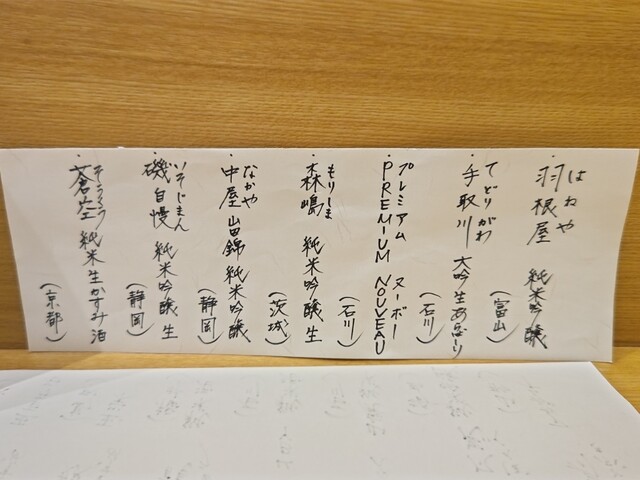 はねや
・羽根屋 純米吟醸
(富山)
てどりがわ
・手取川 大吟生あらばしり
(石川)
プレミアム ヌーボー
・PREMIUM NOUVEAU
(石川)
もりしま
・森嶋 純米吟醸 生
(茨城)
なかや
・中屋 山田錦 純米吟醸
(静岡)
いそじまん
・磯自慢 純米吟醸 生
(静岡)
そうくう
・蒼空 純米 生かすみ酒
(京都)